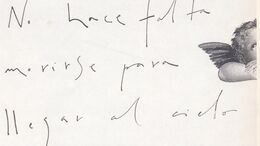 No hace falta
morirse para
llegar al cielo